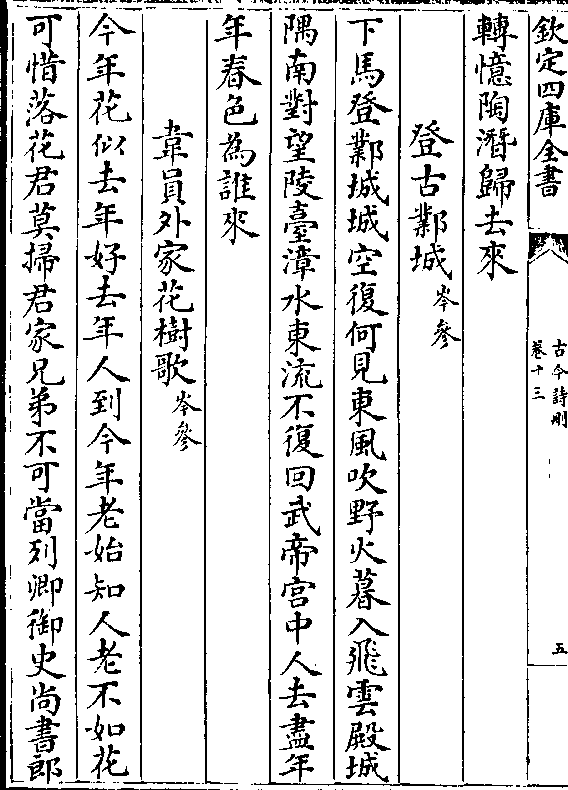 欽定四庫全書
古今詩刪
卷十三
五
轉憶陶潛歸去來
登古鄴城岑參
下馬登鄴城城空復何見東風吹野火暮入飛雲殿城
隅南對望陵臺漳水東流不復回武帝宮中人去盡年
年春色為誰來
韋員外家花樹歌岑參
今年花似去年好去年人到今年老始知人老不如花
可惜落花君莫掃君家兄弟不可當列卿御史尚書郎